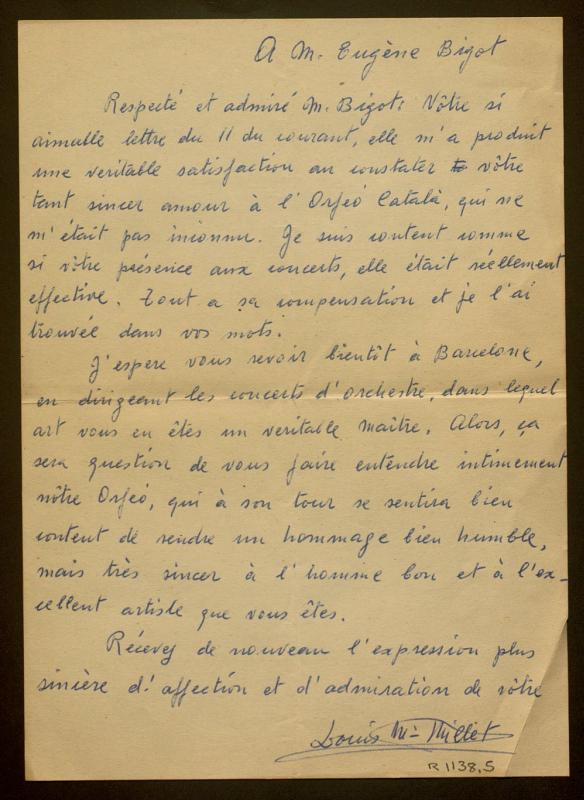 A M. Eugène Bigot
Respecté et admiré M. Bigot: Vôtre si
aimable lettre du 11 du courant, elle m'a produit
une veritable satisfaction au constater vôtre
tant sincer amour à l'Orfeó Català, qui ne
m'était pas inconnu. Je suis content comme
si vôtre présence aux concerts, elle était réellement
effective. Tout a sa compensation et je l'ai
trouvée dans vos mots.
J'espere vous revoir bientôt à Barcelone,
en dirigeant les concerts d'orchestre, dans lequel
art vous en êtes un veritable maître. Alors, ça
sera question de vous faire entendre intimement
nôtre Orfeó, qui à son tour se sentira bien
content de rendre un hommage bien humble,
mais très sincer à l'homme bon et à l'ex-
cellent artiste que vous êtes.
Récevez de nouveau l'expression plus
sincère d'affection et d'admiration de vôtre
Louis Mª Millet
R 1138,5